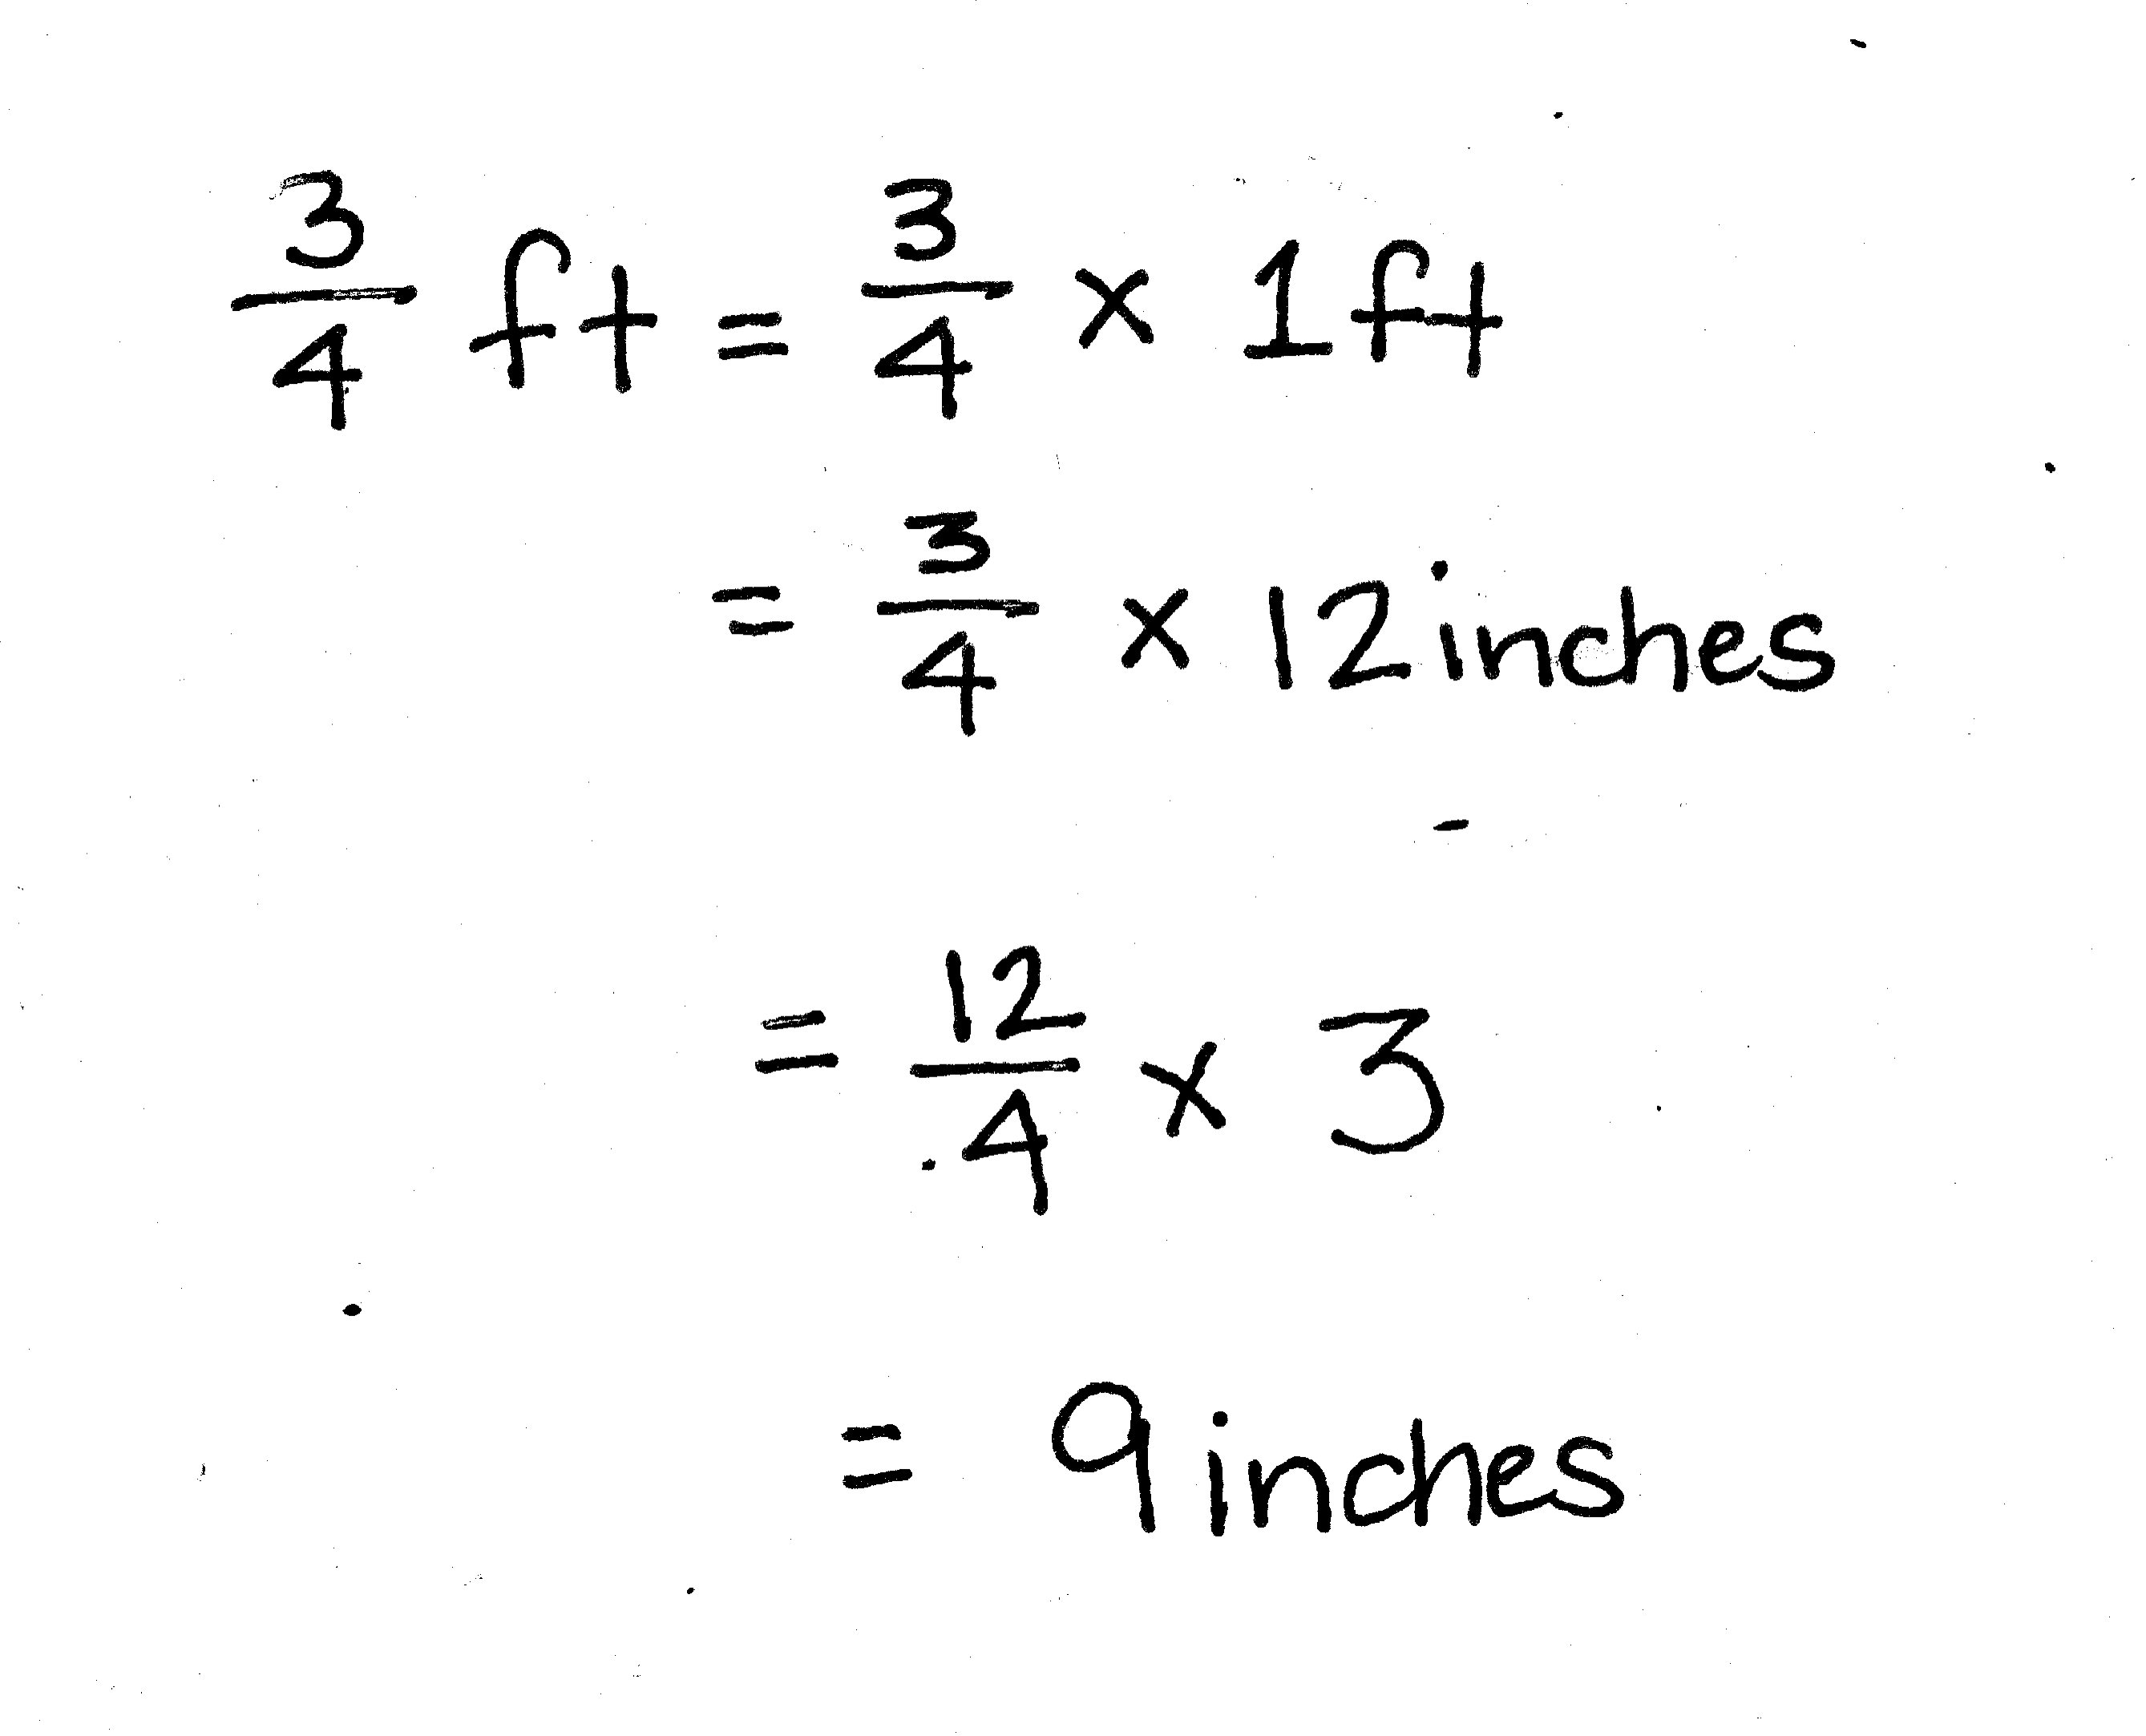 3/4 ft = 3/4 x 1ft
= 3/4 x 12 inches
= 12/4 x 3
= 9 inches